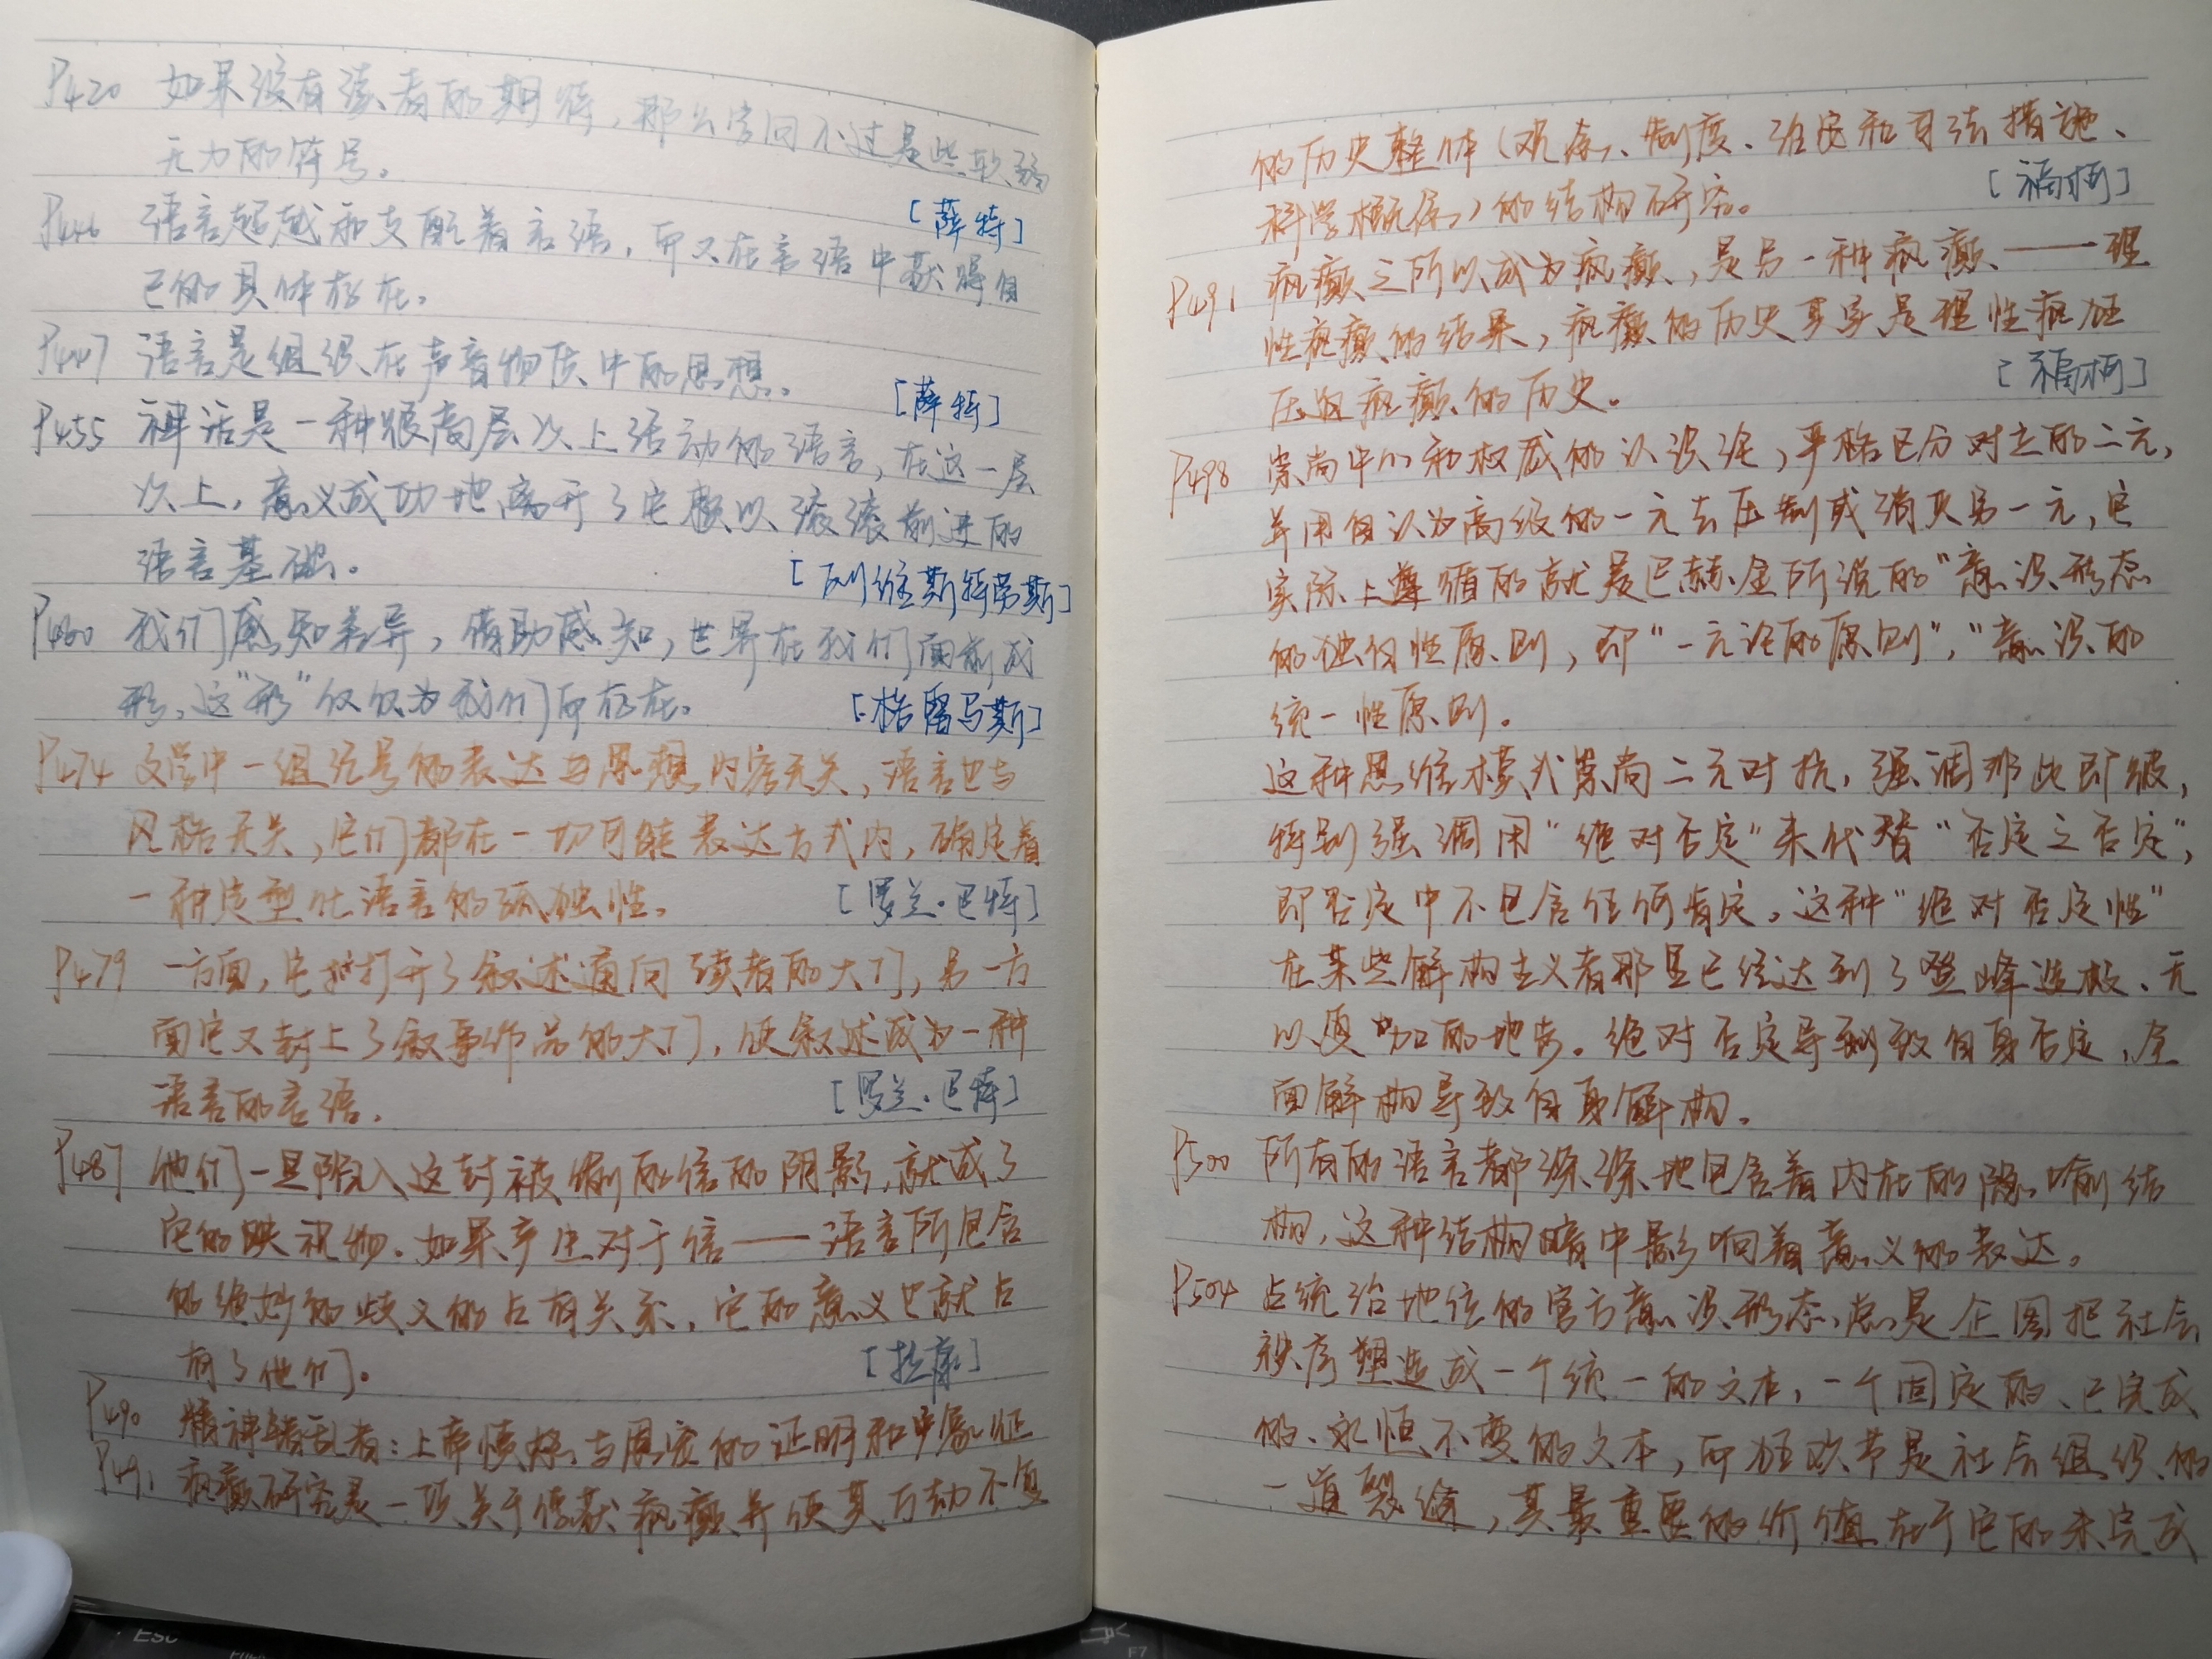 P420 如果没有读者的期待，那么字词不过是些软弱
无力的符号。
[薛特]
P446 语言超越和支配着言语，而又在言语中获得自
己的具体存在。
P447 语言是组织在声音物质中的思想。
[薛特]
P455 神话是一种很高层次上活动的语言，在这一层
次上，意义成功地离开了它赖以滚滚前进的
语言基础。
[列维斯特劳斯]
P460 我们感知差异，借助感知，世界在我们面前成
形，这"形"仅仅为我们而存在。
[格雷马斯]
P474 文学中一组符号的表达与思想内容无关，语言也与
风格无关，它们都在一切可能表达方式内，确定着
一种定型化语言的孤独性。 [罗兰·巴特]
P479 一方面，它打开了叙述通向读者的大门，另一方
面它又封上了叙事作品的大门，使叙述成为一种
语言的言语。 [罗兰·巴特]
P487 他们一旦陷入这封被偷的信的阴影，就成了
它的映视物。如果产生对于信——语言所包含
的绝妙的歧义的占有关系，它的意义也就占
有了他们。 [拉康]
P490 精神错乱者：上帝愤怒与恩宠的证明和象征
P491 疯癫研究是一项关于俘获疯癫并使其万劫不复
的历史整体（观念、制度、治安和司法措施、
科学概念）的结构研究。 [福柯]
P491 疯癫之所以成为疯癫，是另一种疯癫——理
性疯癫的结果，疯癫的历史其实是理性疯狂
压迫疯癫的历史。 [福柯]
P498 崇尚中心和权威的认识论，严格区分对立的二元，
并用自认为高级的一元去压制或消灭另一元，它
实际上遵循的就是巴赫金所说的"意识形态
的独白性原则，即"一元论的原则"，"意识的
统一性原则。
这种思维模式崇尚二元对抗，强调非此即彼，
特别强调用"绝对否定"来代替"否定之否定"，
即否定中不包含任何肯定。这种"绝对否定性"
在某些解构主义者那里已经达到了登峰造极、无
以复加的地步。绝对否定导致自身否定，全
面解构导致自身解构。
P500 所有的语言都深深地包含着内在的隐喻结
构，这种结构暗中影响着意义的表达。
P504 占统治地位的官方意识形态总是企图把社会
秩序塑造成一个统一的文本，一个固定的、已完成
的、永恒不变的文本，而狂欢节是社会组织的
一道裂缝，其最重要的价值在于它的未完成